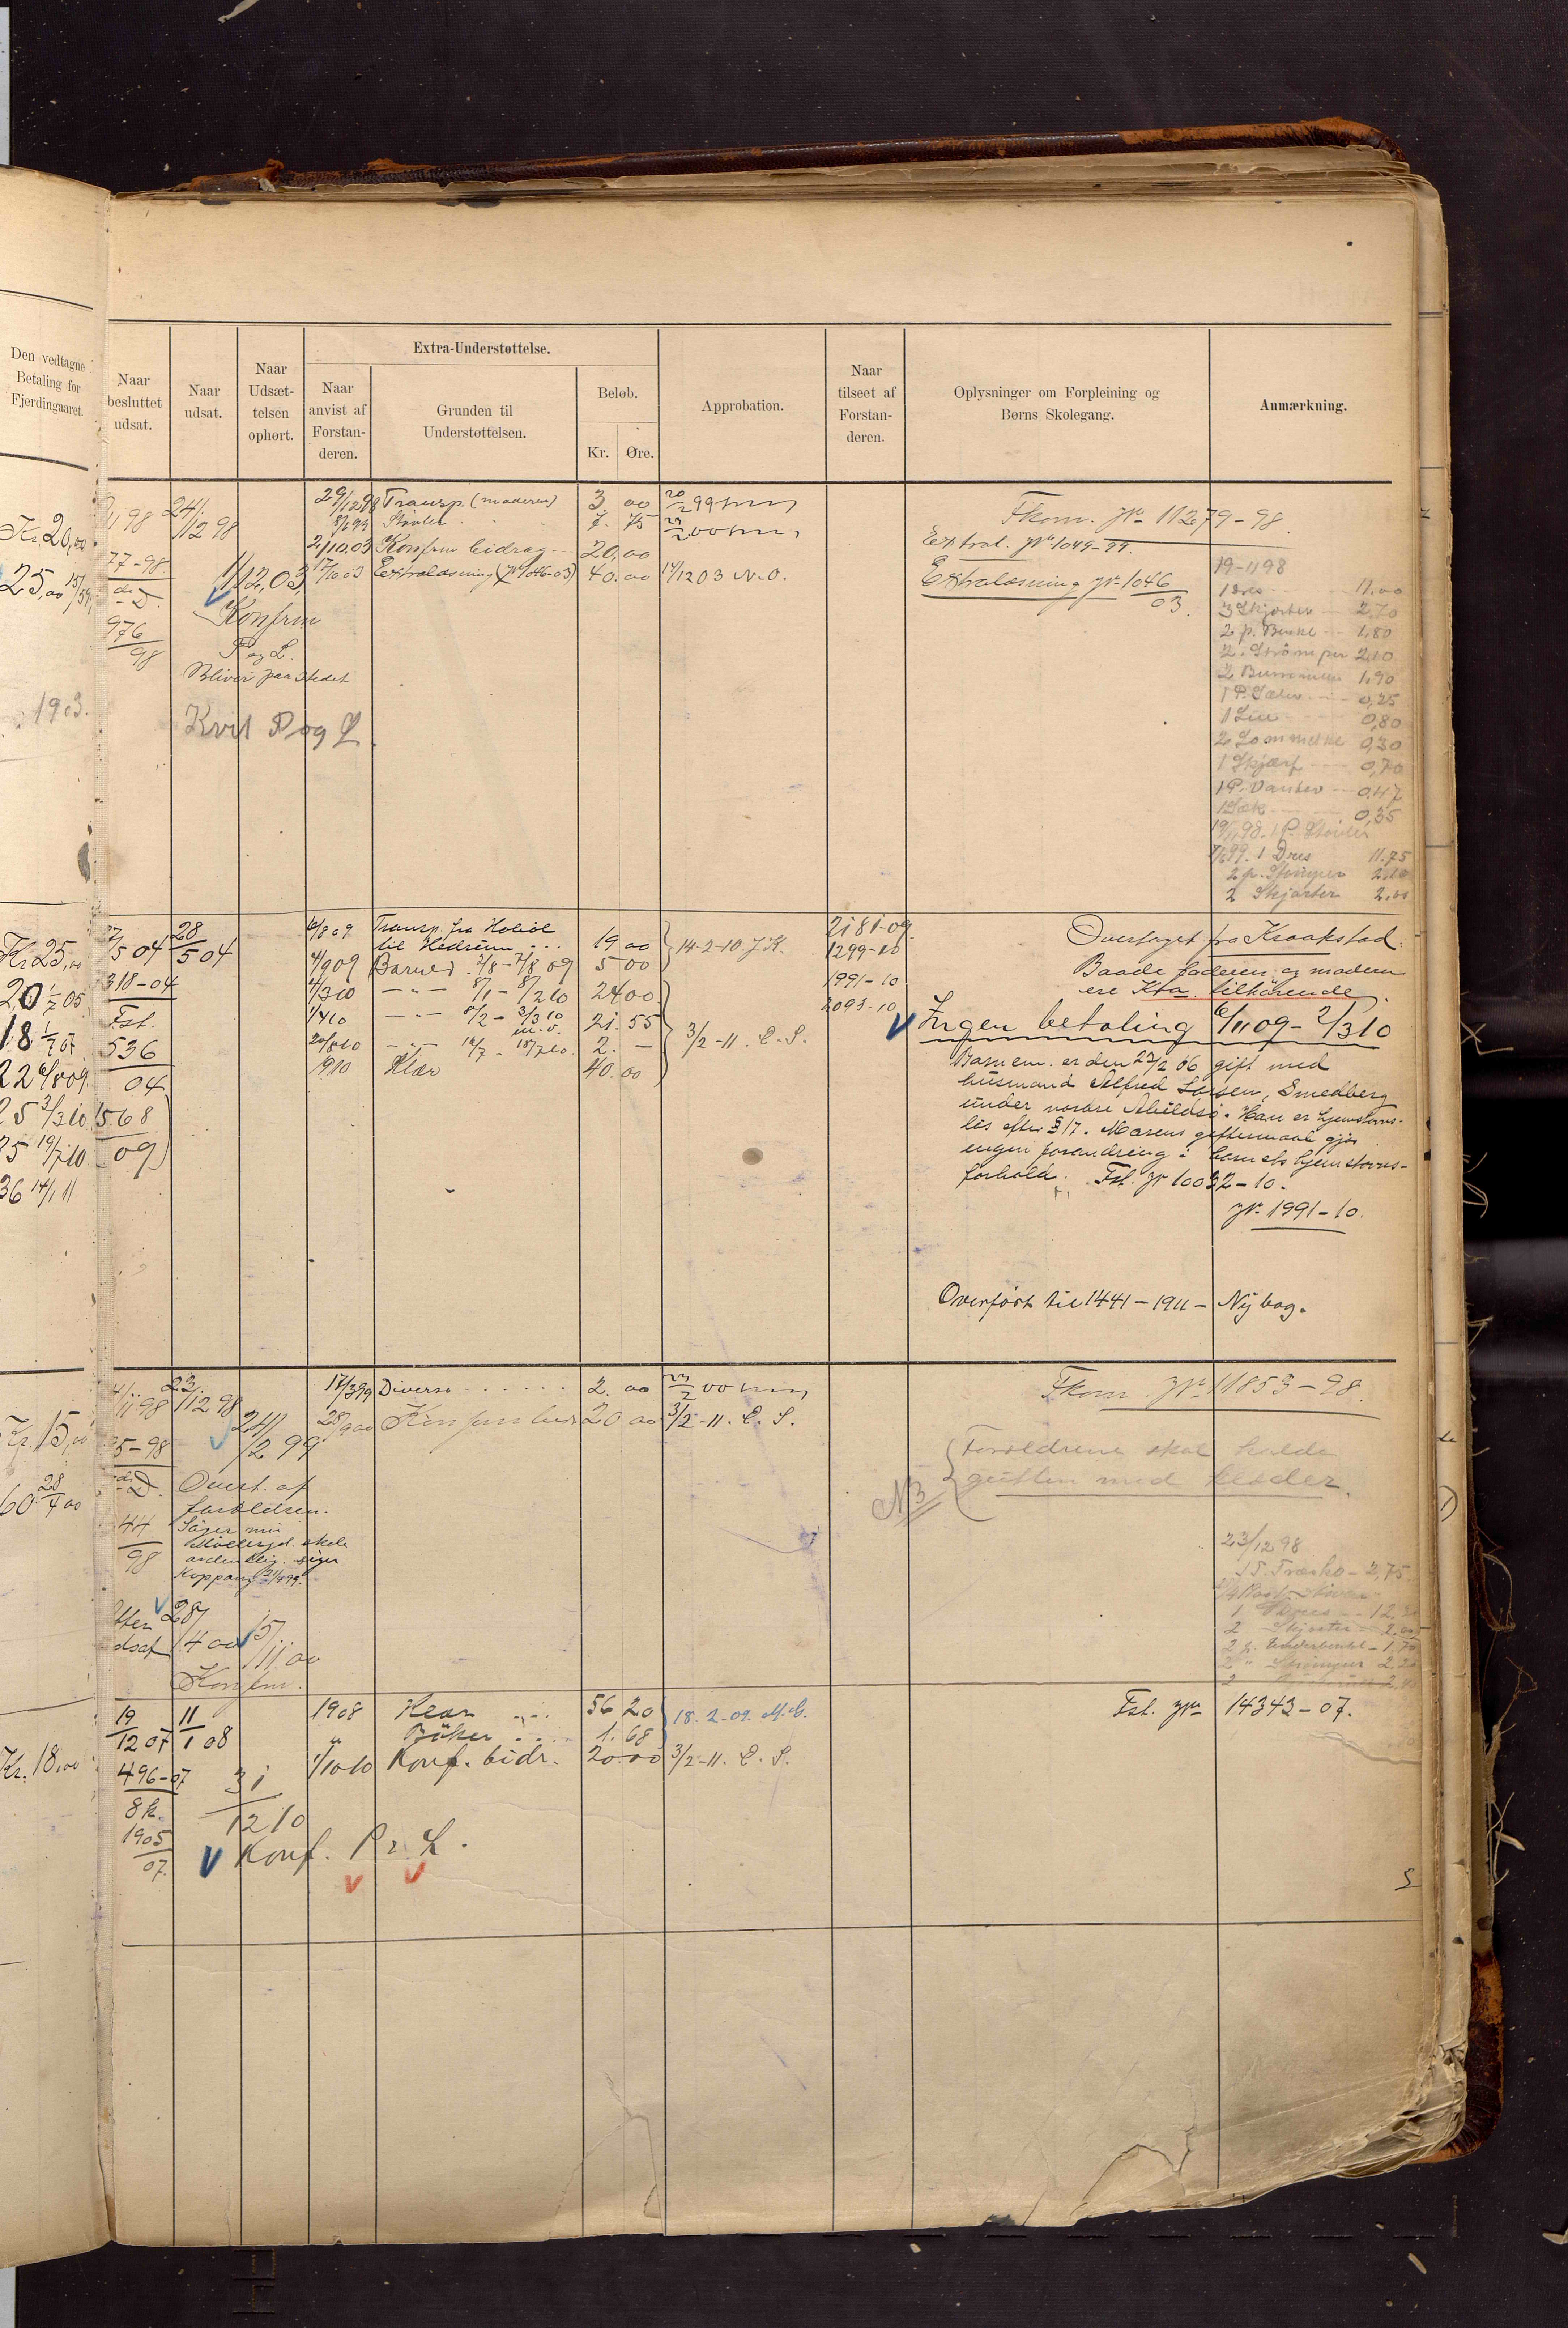 Den vedtagne
Betaling for
Fjerdingaaret.
Naar
besluttet
udsat.
Naar
udsat.
Naar
Udsæt-
telsen
ophørt.
Extra-Understøttelse.
Naar
anvist af
Forstan-
deren.
Grunden til
Understøttelsen.
Beløb.
Kr. Øre.
Approbation.
Naar
tilseet af
Forstan-
deren.
Oplysninger om Forpleining og
Børns Skolegang.
Anmærkning.
Kr. 20,00
25,00 15/
1903.
11 98
77-98
976
98
24/
12 98
1/12,03
Konfrm
P og L.
Bliver paa stedet
Kvit P og L.
29/12 98 Transp. (moderen) 3 00 20/2 99
8/1 99 Støvler 7. 75 23/2 00
2/10.03 Konfrm bidrag 20,00
17/10 03 Extralæsning (Jr 1046-03) 40.00 14/12 03 N.O.
Fkom. Jr 11279-98
Extral. Jr 1049-99.
Extralæsning Jr 1046
03.
19-11 98
1 Dres 11,00
3 Skjorter 2,70
2 p. Benkl 1,80
2. Strömper 2,10
1,90
1 P. Sæler 0,25
1 Lue 0,80
2 Lommetkl 0,30
1 Skjærf 0,70
1 P. Vanter 0,47
1 Sæk 0,35
19/11 98. 1 P. Støvler
99. 1 Dres 11.75
2 p. Strömper 2,10
2 Skjorter 2,00
Kr 25,00
20 1/7 05
18 1/7 07
22 6/8 09.
25 3/3 10
35 19/7 10.
36 14/1 11
27/5 04
318-04
Fst.
536
04
568
09
28
5 04
6/8 09 Transp. fra Hobøl
til Hedrum 19,00
4/9 09 Barnet 2/8-7/8 09 5 00
14-2-10 J.K.
4/3 10 -"- 8/1-8/2 10 24 00
1/4 10 -"- 8/2-3/3 10
m.v. 21.55
20/8 10 -"- 16/7-18/7 10. 2. -
1910 Klær 40.00
3/2-11. E. S.
2181-09
1299-10
1991-10
2093-10
Overtaget fra Kraakstad.
Baade faderen og moderen
ere Kra. tilhørende.
Ingen betaling 6/11 09-2/3 10
Barnem. er den 23/2 06 gift med
husmand Alfred Larsen, Smedberg
under nordre Abildsø. Han er hjemstavns-
løs efter § 17. Morens giftermaal gjør
ingen forandring i barnets hjemstavns-
forhold. Fst. Jr 10032-10.
Jr. 1991-10.
Overført til 1441-1911- Ny bog.
Kr. 15,00
60 28/4 00
4/11 98
5-98
44
98
23
12 98
24/
2 99
Overt. af
forældren.
skole
ordentlig. siger
Koppang
Efter
28/
4 00
15/
11.00
Konfrm.
17/3 99 Diverse 2. 00 23/2 00
28/9 00 Konfrm bidr 20 00 3/2-11. E. S.
Fkom Jr 11853-98.
NB
Forældrene skal holde
gutten med klæder.
23/12 98
1 P. Træsko - 2,75.
1 Dres
2 Skjorter 2,00
2 p. Underbenkl - 1.70
2 " Strömper 2,20
Kr. 18,00
19
12 07
496-07
8 k.
1905
07.
11
1 08
31
12 10
Konf. P & L.
1908 Klær 56 20
" Bøker 1.68
18-2-09. M.C.
1/10 10 Konf. bidr. 20.00 3/2-11. E. S.
Fst. Jr 14343-07.